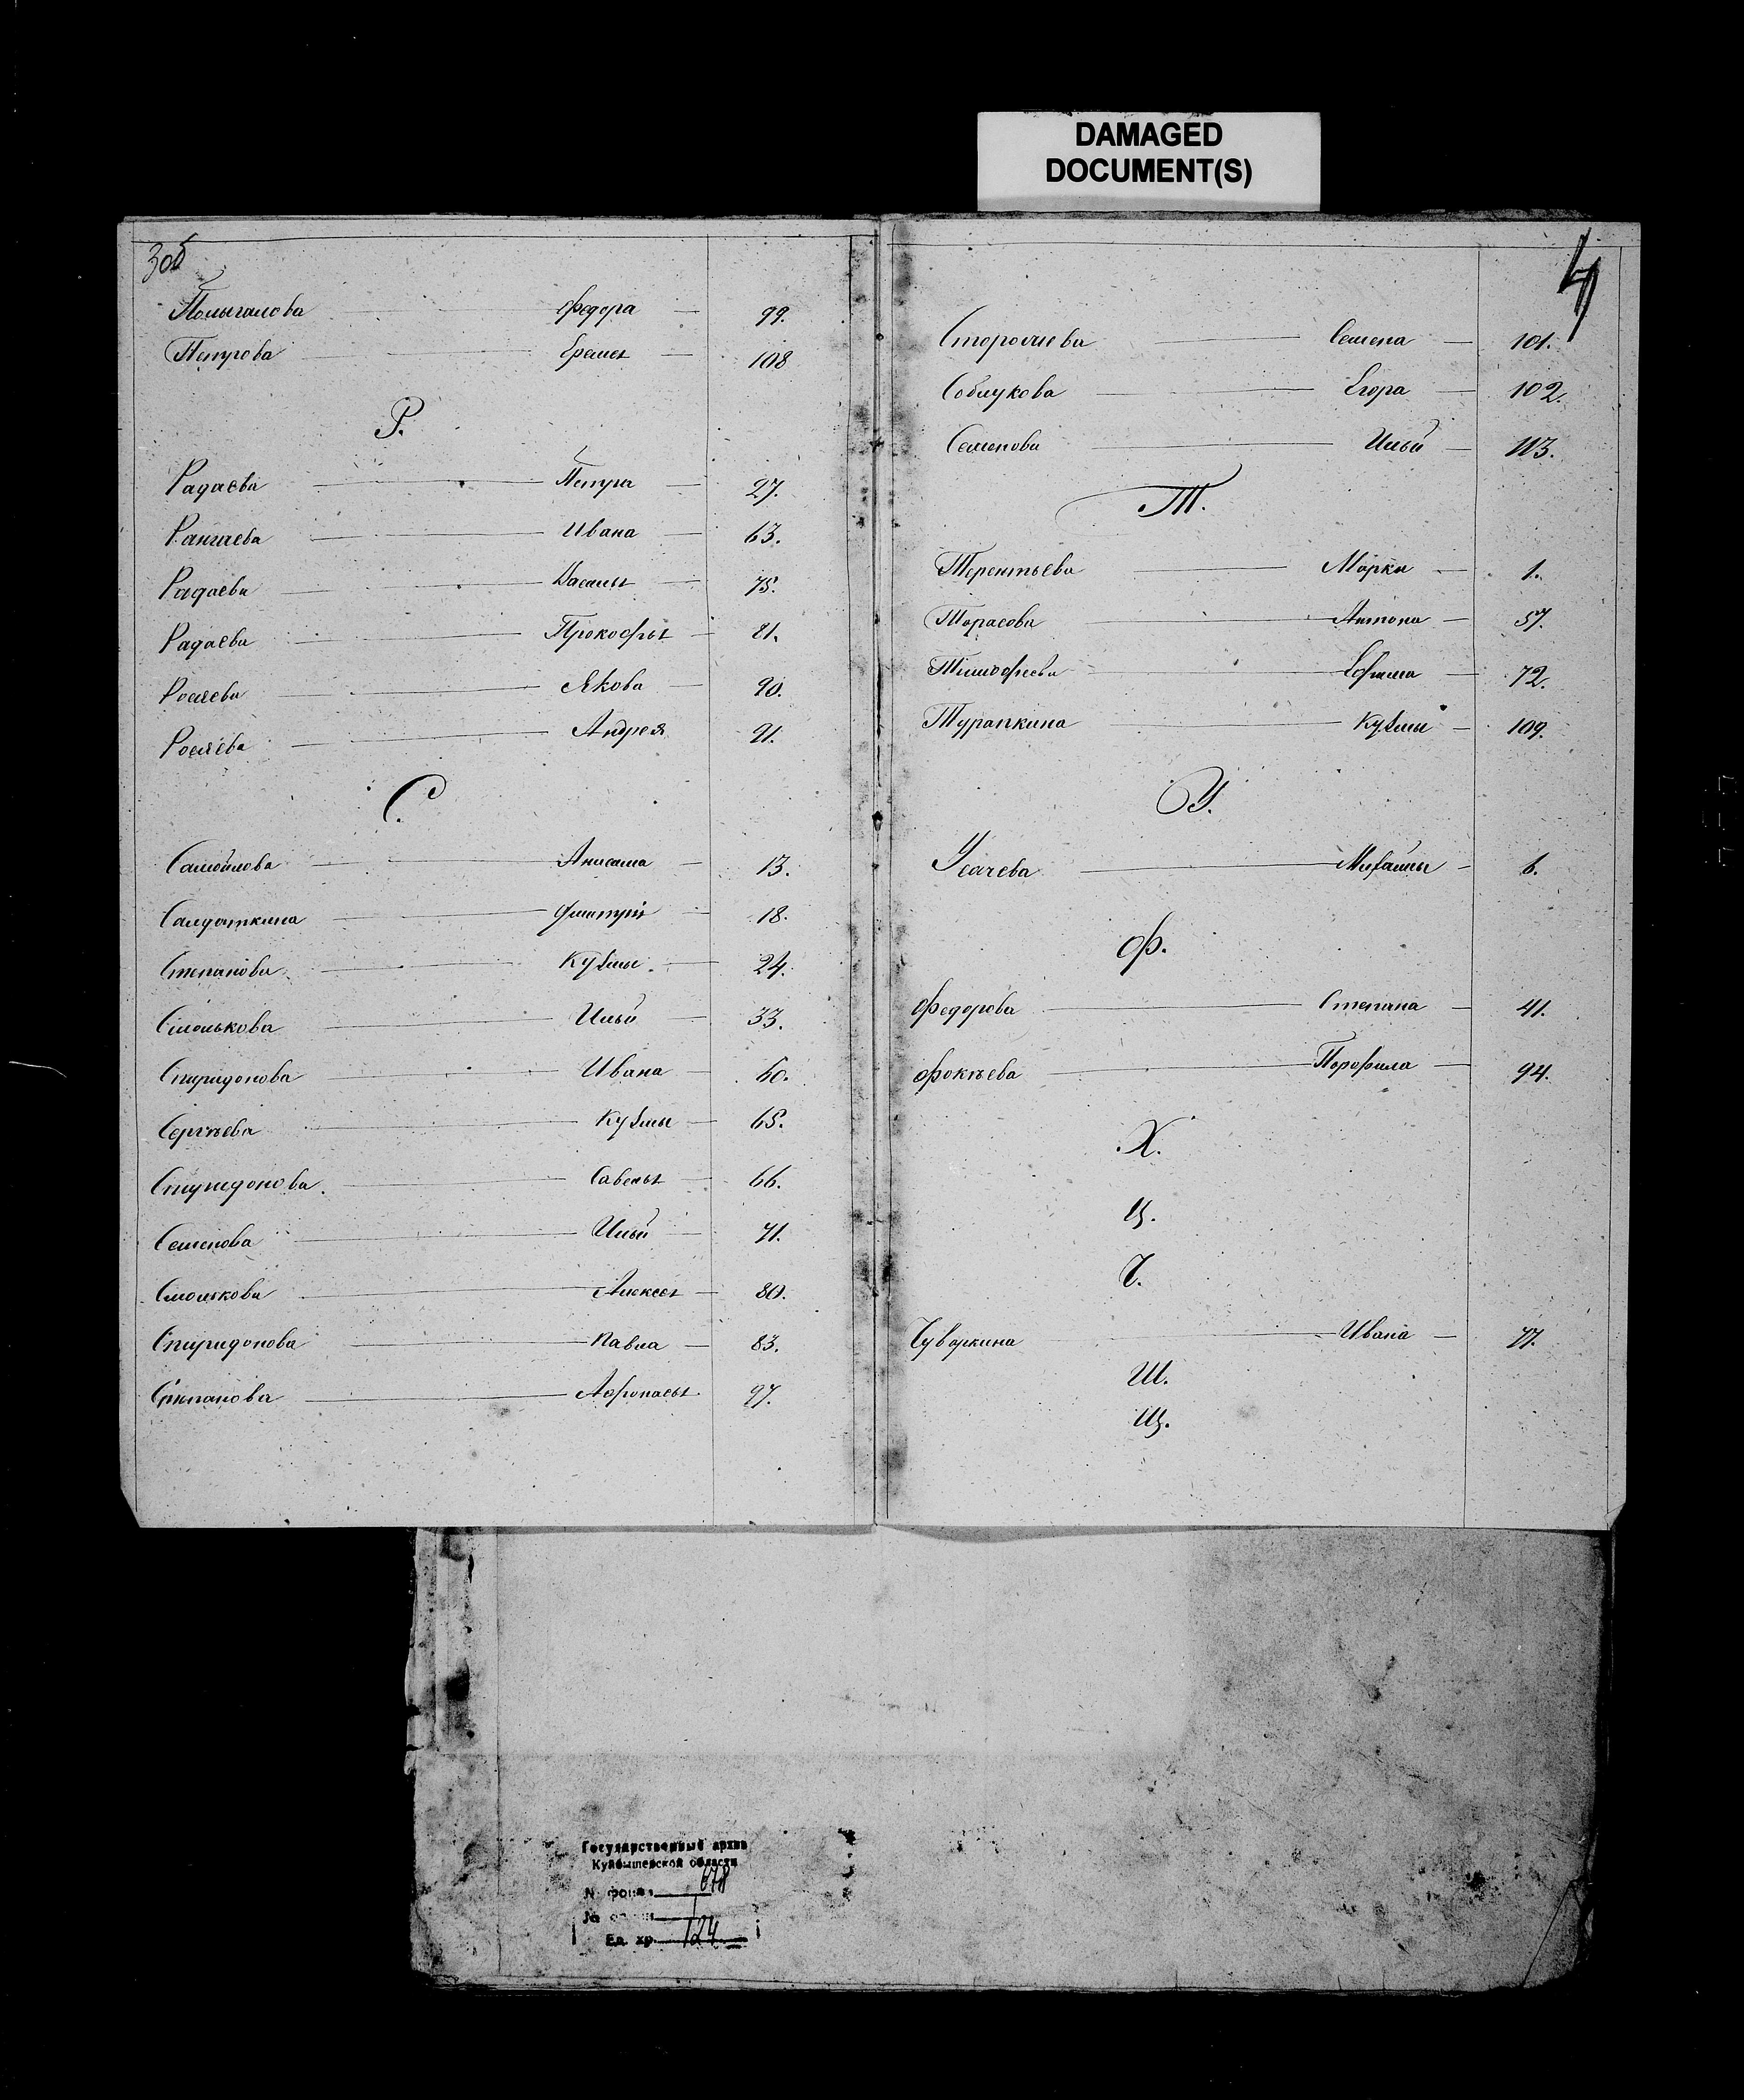 DAMAGED
DOCUMENT(S)
3об
Полыгалова Федора 99.
Петрова Еремея 108
Р.
Радаева Петра 27.
Рангаева Ивана 63.
Радаева 75.
Радаева Прокофья 81.
Росяева Якова 90.
Росяева Андрея 91.
С.
Самойлова Анисима 13.
Салдаткина Дмитрія 18.
Степанова Кузьмы 24.
Смолькова Ильи 33.
Спиридонова Ивана 60.
Сергѣева Кузьмы 65.
Спиридонова Савелья 66.
Семенова Ильи 71.
Смолькова Алексея 80.
Спиридонова Павла 83.
Степанова Афонасья 97.
4
Семена 101.
Егора 102.
Семенова Ильи 113.
Т.
Терентьева Марка 1.
Тарасова Антона 57.
Тимофѣева Ефима 72.
Турапкина Кузьмы 109.
У.
Усачева Михайлы 6.
Ф.
Федорова Степана 41.
Фокѣева Порфила 94.
Х.
Ц.
Ч.
Чуваркина Ивана 77.
Ш.
Щ.
Государственный архив
Куйбышевской области
№ фонда 678
№ описи 1
Ед. хр. 124